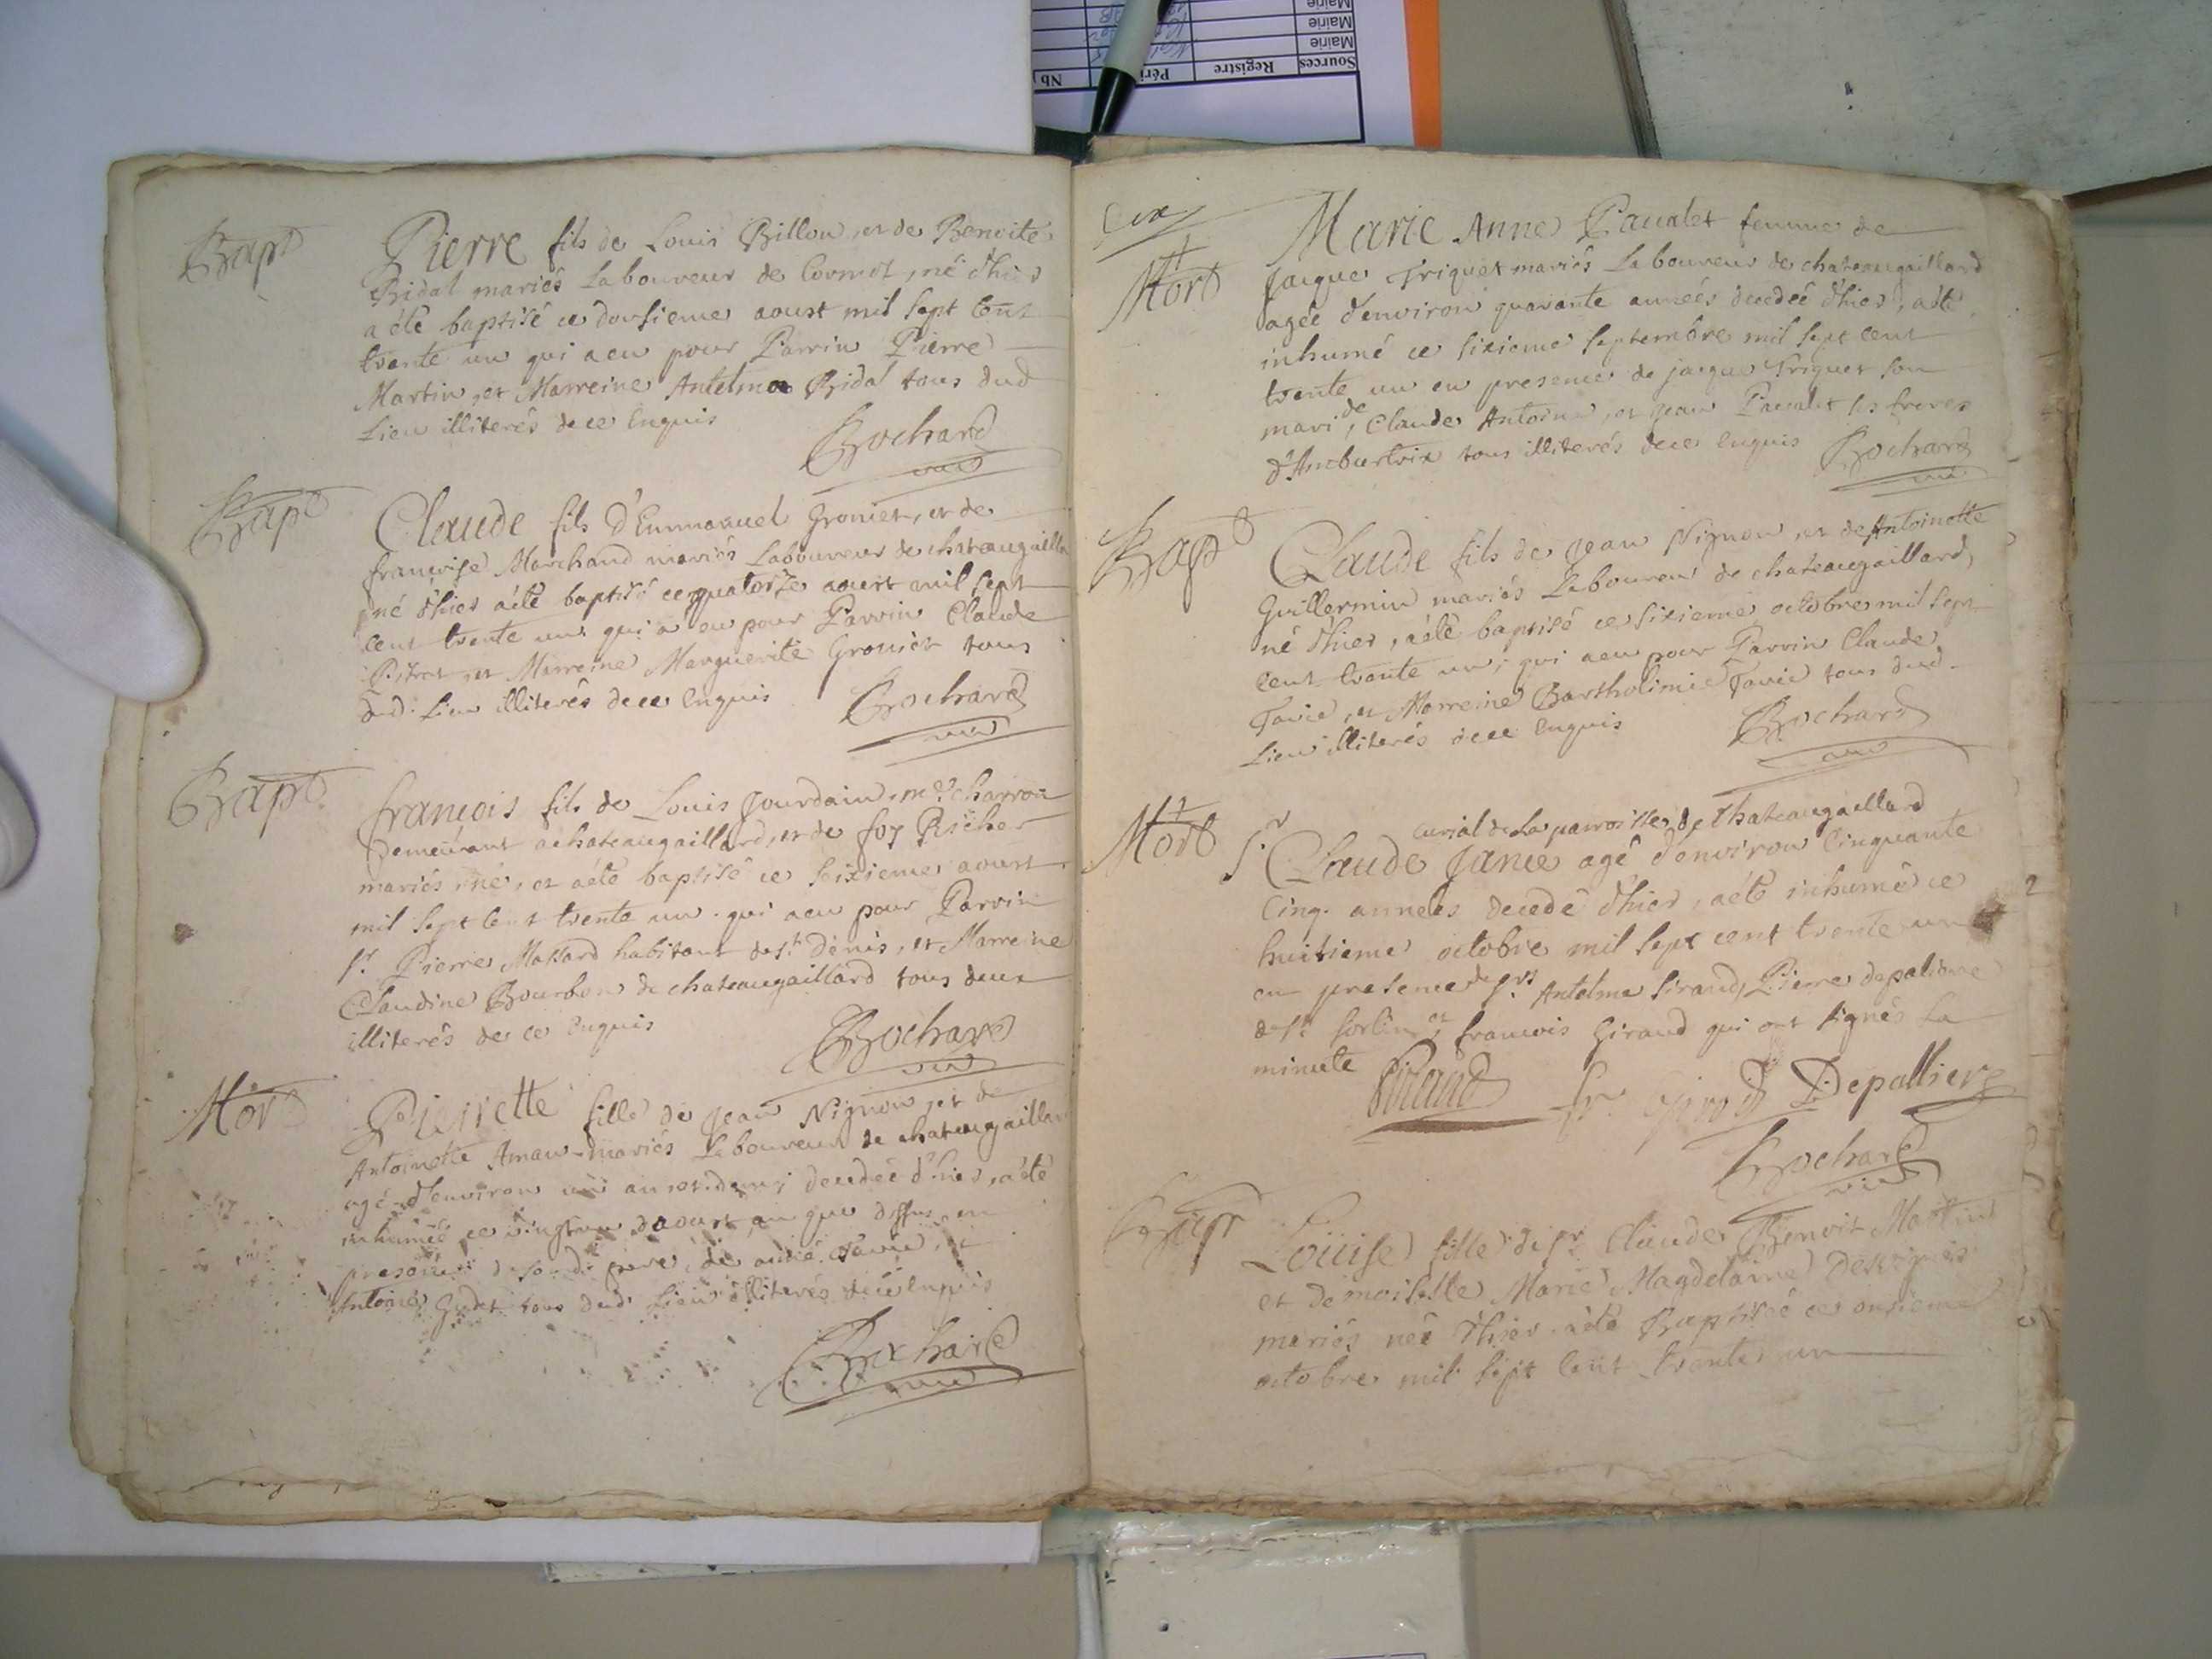 Bapt
Pierre fils de Louis Billon, et de Benoite
Bidal mariés Laboureur de Cormot, né d'hier
a été baptisé ce dousieme aoust mil sept cent
trente un qui a eu pour Parrin Pierre
Martin, et Marreine Antelma Bidal tous dud
Lieu illiterés de ce Enquis
Bochard
Bapt
Claude fils d'Emmanuel Groniet, et de
francoise Marchand mariés Laboureur de chateaugailla
né d'hier a été baptisé ce quatorze aoust mil sept
cent trente un qui a eu pour Parrin Claude
et Marreine Marguerite Groniet tous
dud. Lieu illiterés de ce Enquis
Bochard
Bapt
francois fils de Louis Jourdain, me charron
demeurant a chateaugaillard, et de foy
mariés, né, et a été baptisé ce seixieme aoust
mil sept cent trente un. qui a eu pour Parrin
sr. Pierre Massard habitant de st. Denis, et Marreine
Claudine Bourbon de chateaugaillard tous deux
illiterés de ce Enquis
Bochard
Mort
Pierrette fille de Jean Nignon, et de
Antoinette mariés Laboureur de chateaugaillar
agé d'environ un an et demi decedée d'hier, a été
inhumée ce d'aoust, an que dessus en
presence de sond. pere, de
Antoine Godet tous dud. Lieu illiterés de ce Enquis
Bochard
Mort
Marie Anne Pavalet femme de
Jacque Triquet mariés Laboureur de chateaugaillard
agée d'environ quarante années decedée d'hier, a été
inhumé ce sixieme septembre mil sept cent
trente un en presence de jacque Triquet son
mari, de Claude Antoine, et Jean Pavalet ses freres
d'Ambutrix tous illiterés de ce Enquis
Bochard
Bapt
Claude fils de Jean Nignon, et de Antoinette
Guillermin mariés Laboureur de chateaugaillard,
né d'hier, a été baptisé ce sixieme octobre mil sept
cent trente un, qui a eu pour Parrin Claude
Tavie, et Marreine Bartholimie Tavie tous dud.
Lieu illiterés de ce Enquis
Bochard
Mort
curial de La parroisse de Chateaugaillard
Sr Claude Janie agé d'environ Cinquante
Cinq. années decedé d'hier, a été inhumé ce
huitieme octobre mil sept cent trente un
en presence de srs Antelme Siraud, Pierre depaliere
de st sorlin et, francois Giraud qui ont signés La
minute
Siraud fr. girod Depalliere
Bochard
Louise fille de sr. Claude Benoit Martin
et demoiselle Marie Magdelaine
mariés née d'hier a été Baptisée ce onsieme
octobre mil sept cent trente un
2
Sources Registre Péri Nb
Mairie
Mairie
Mairie